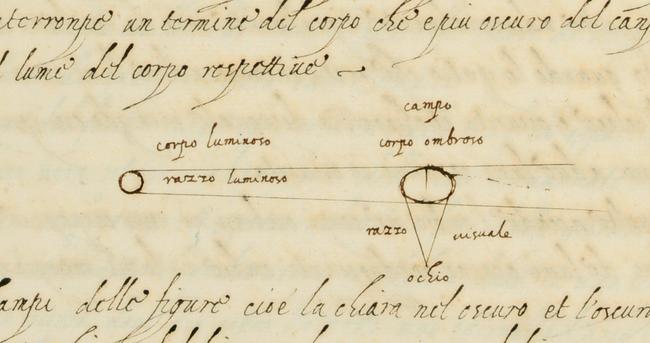 interronpe un termine del corpo che e piu oscuro del
lume del corpo respettive
campo
corpo luminoso
corpo ombroso
razzo luminoso
razzo
visuale
ochio
campi delle figure cioe la chiara nel oscuro et l'oscura